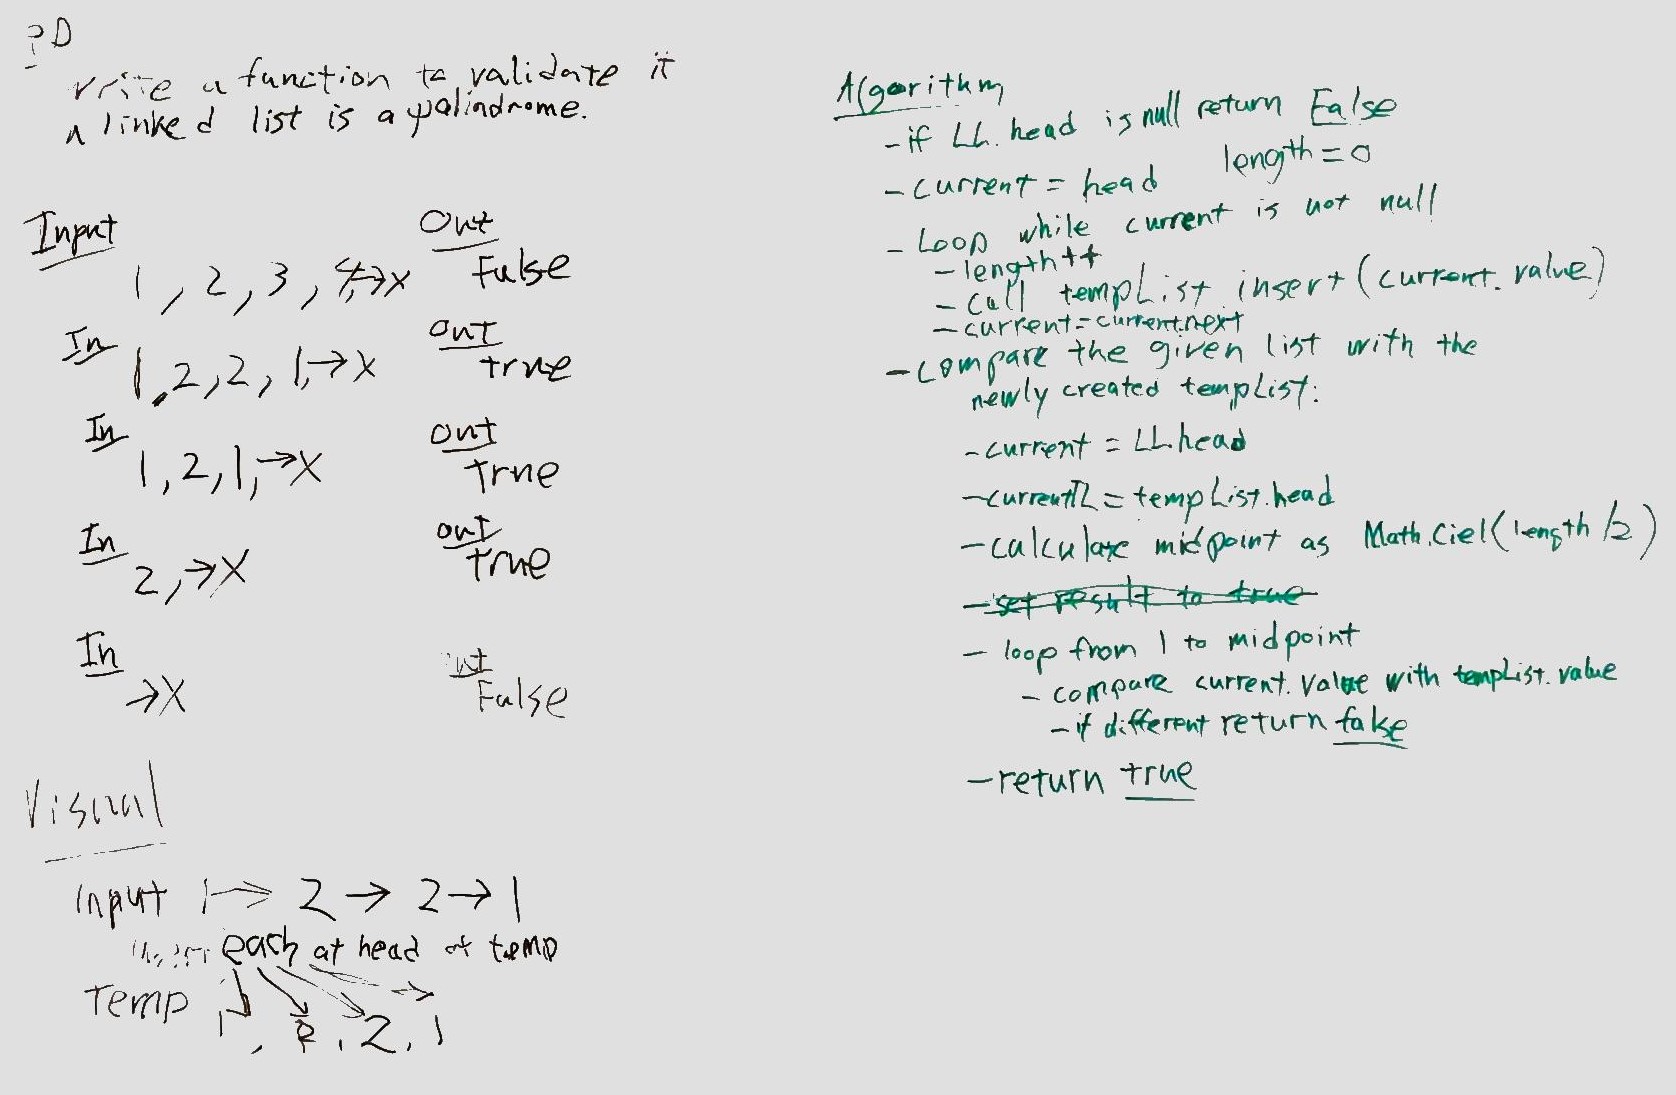 PD
write a function to validate if
a linked list is a palindrome.
Input
Out
1, 2, 3, 4, → X
False
In
out
1, 2, 2, 1, → X
true
In
out
1, 2, 1, → X
true
In
out
2, → X
true
In
out
→ X
False
Visual
Input 1 → 2 → 2 → 1
each at head of temp
Temp 1, 2, 2, 1
Algorithm
- if LL.head is null return False
- current = head length = 0
- Loop while current is not null
- length++
- call tempList.insert(current.value)
- current = current.next
- compare the given list with the
newly created tempList:
- current = LL.head
- currentTL = tempList.head
- calculate midpoint as Math.Ciel(length/2)
- set result to true
- loop from 1 to midpoint
- compare current.value with tempList.value
- if different return false
- return true